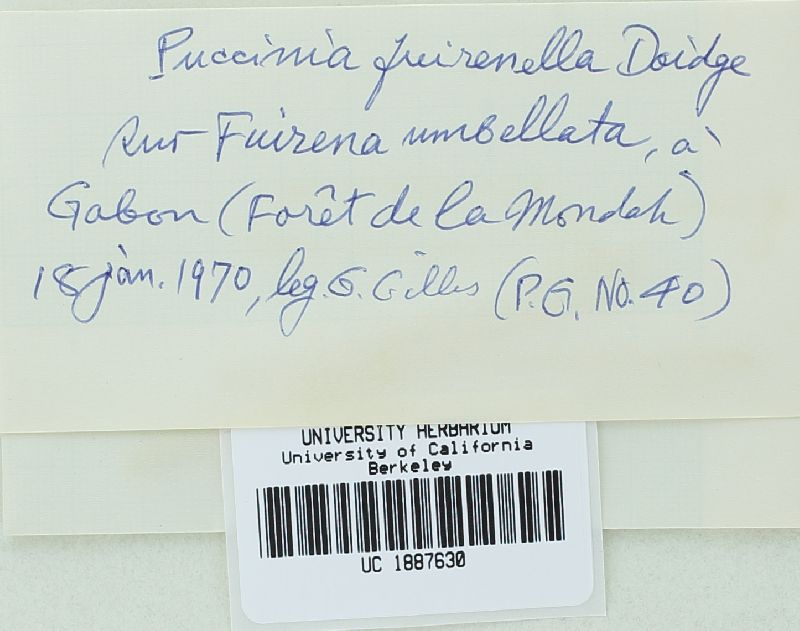 Puccinia fuirenella Doidge
sur Fuirena umbellata, à
Gabon (Forêt de la Mondah)
18 jan. 1970, leg. G. Gilles (P.G. No. 40)
UNIVERSITY HERBARIUM
University of California
Berkeley
UC 1887630